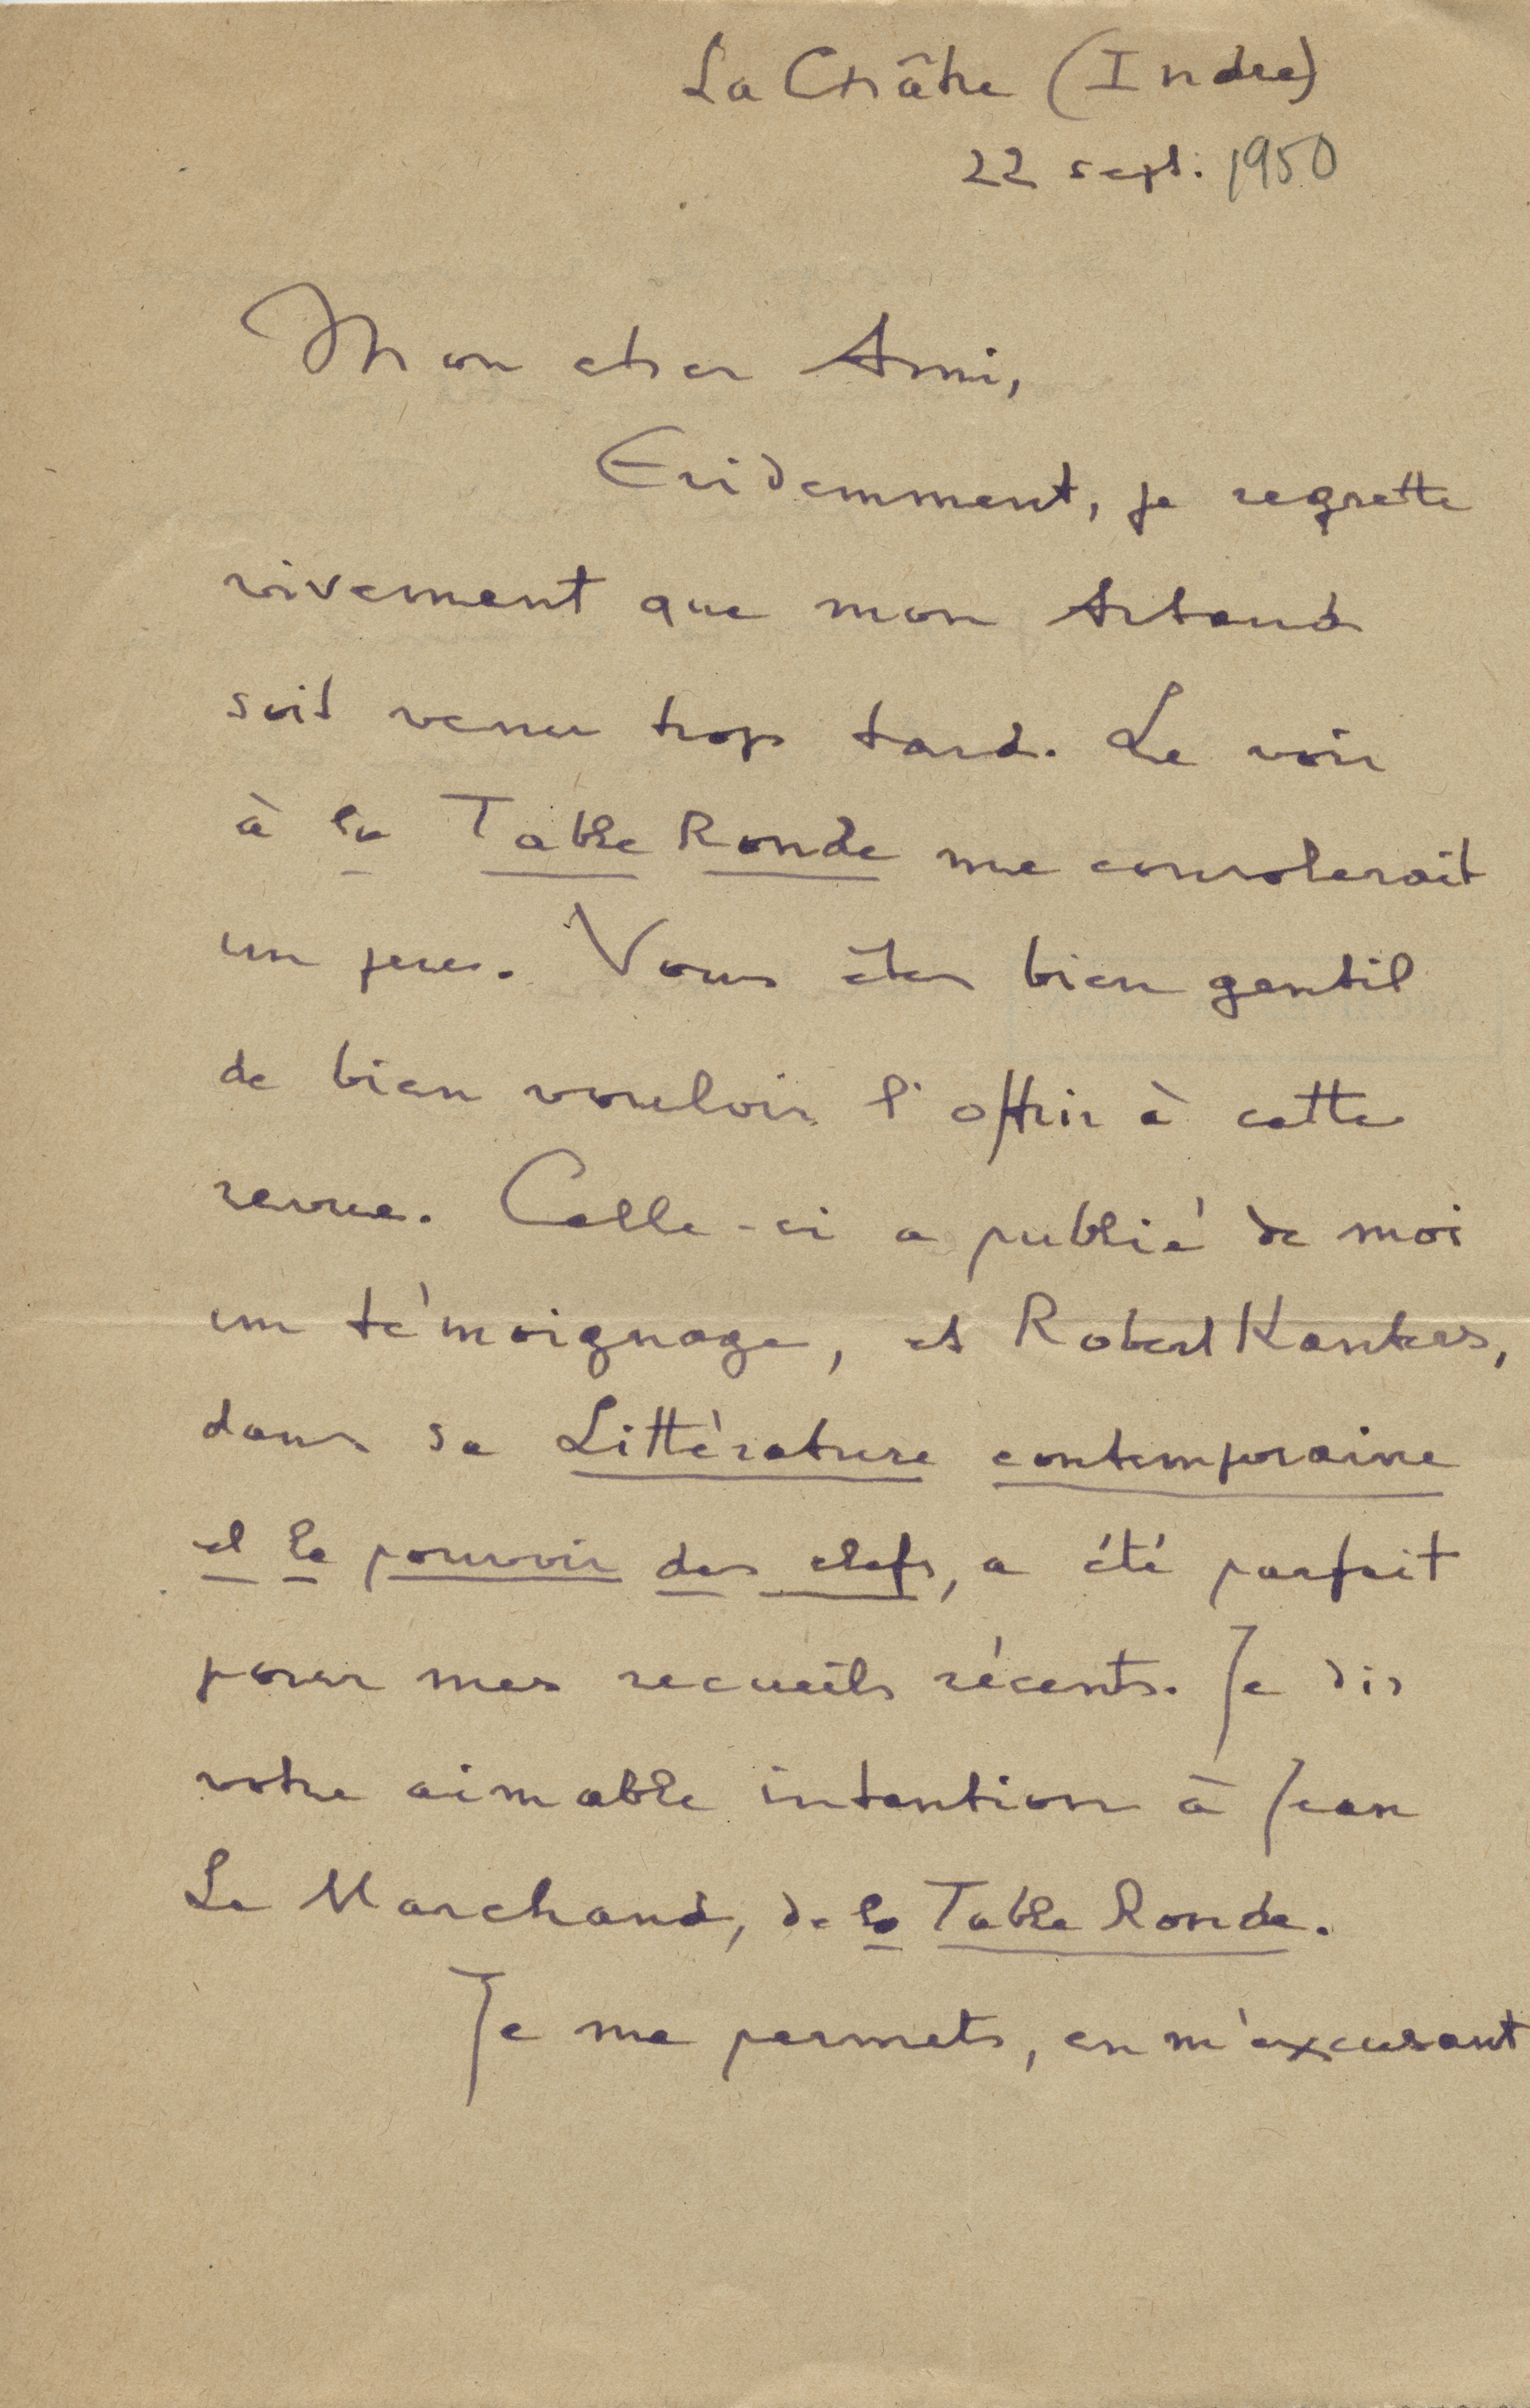 La Châtre (Indre)
22 sept. 1950
Mon cher Ami,
Evidemment, je regrette
vivement que mon Artaud
soit venu trop tard. Le voir
à la Table Ronde me consolerait
un peu. Vous êtes bien gentil
de bien vouloir l'offrir à cette
revue. Celle-ci a publié de moi
un témoignage, et Robert Kanters,
dans sa Littérature contemporaine
et le pouvoir des clefs, a été parfait
pour mes recueils récents. Je dis
votre aimable intention à Jean
Le Marchand, de la Table Ronde.
Je me permets, en m'excusant